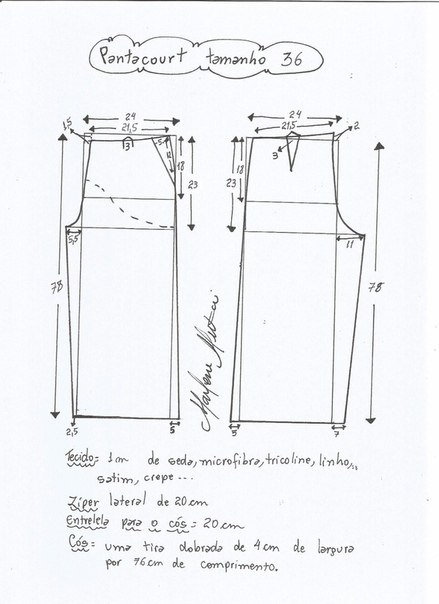 Pantacourt tamanho 36
24
21,5
1,5
3
5
12
18
23
78
5,5
2,5
5
24
21,5
2
3
18
23
11
78
5
7
Marlene Mukai
Tecido = 1m de seda, microfibra, tricoline, linho,
satim, crepe ...
Zíper lateral de 20cm
Entretela para o cós = 20cm
Cós = uma tira dobrada de 4cm de largura
por 76cm de comprimento.